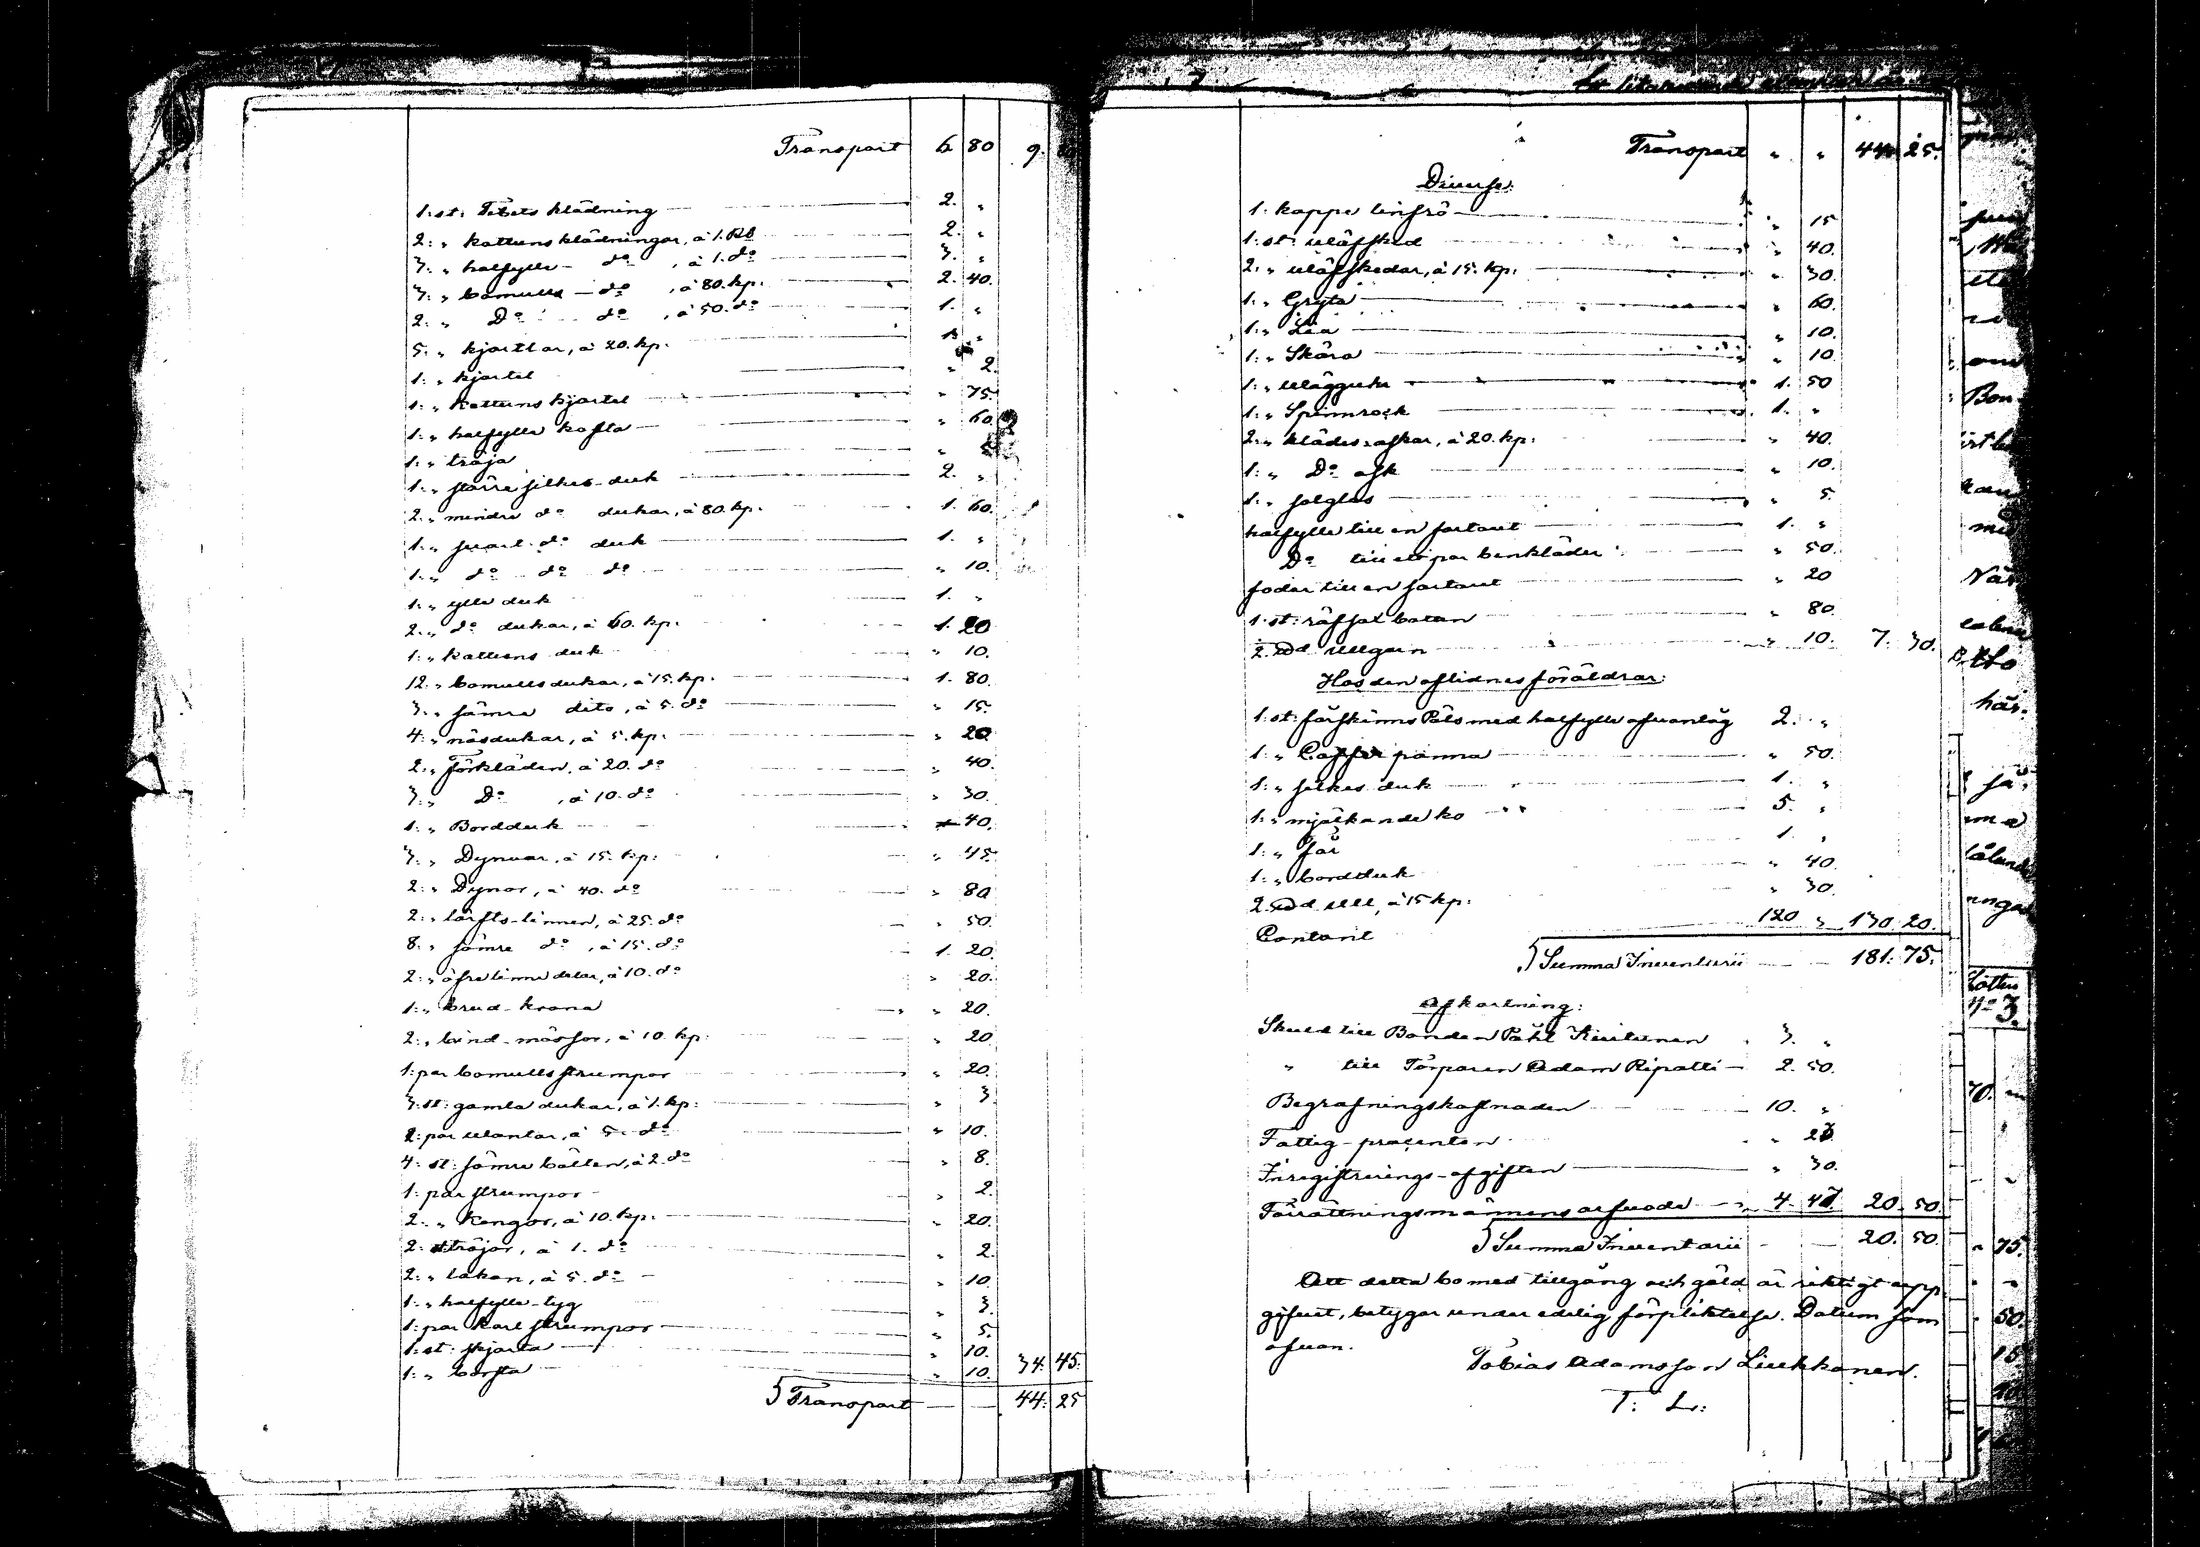 Transport 6 80 9.
1: st: Tibets klädning 2. "
2: " kattuns klädningar, á 1. Rb 2. "
3: " halfylle - do , á 1. do 3. "
3: " bomulls - do , á 80. kp. 2. 40.
2: " Do do , á 50. do 1. "
5: " kjortlar, á 20. kp. 1. "
1: " kjortel " 2.
1: " kattuns kjortel " 75.
1: " halfylle kofta " 60.
1: " tröja "
1: " större silkes-duk 2. "
2: " mindre do dukar, á 80. kp. 1. 60.
1: " svart do duk 1. "
1: " do do do " 10.
1: " ylle duk 1. "
2: " do dukar, á 60. kp. 1. 20
1: " kattuns duk " 10.
12: " bomullsdukar, á 15. kp. 1. 80.
3: " sämre dito, á 5. do " 15.
4: " näsdukar, á 5. kp. " 20
2: " Förkläden, á 20. do " 40.
3: " Do , á 10. do " 30.
1: " Bordduk 40.
3: " Dynvar, á 15. kp. " 45.
2: " Dynor, á 40. do " 80
2: " lärfts-linnen, á 25. do " 50.
8: " sämre do , á 15. do 1. 20.
2: " öfrelinne delar, á 10. do " 20.
1: " brud-krona " 20.
2: " bind-mössor, á 10 kp. " 20
1: par bomulls strumpor " 20.
3: st: gamla dukar, á 1. kp: " 3.
2: par vantar, á 5. do " 10.
4: st: sämre bälten, á 2. do " 8.
1: par strumpor " 2.
2: " Kengor, á 10. kp. " 20.
2: st tröjor, á 1. do " 2.
2: " lakan, á 5. do " 10.
1: " halfylle-tyg " 3.
1: par karl strumpor " 5.
1: st: skjorta " 10.
1: " borsta " 10. 34. 45.
Transport 44. 25
Transport " " 44 25.
Diverse:
1: kappe linfrö " 15
1: st: vläfsked " 40.
2: " vläfskedar, á 15. kp: " 30.
1: " Gryta " 60
1: " Lia " 10.
1: " Skära " 10.
1: " vläggur 1. 50
1: " Spinnrock 1. "
2: " klädes-askar, á 20. kp: " 40.
1: " Do ask " 10.
1: " solglas " 5
halfylle till en sortout 1. "
Do till ett par benkläder " 50.
foder till en sortout " 20
1: st: räffsat botan " 80.
2. ullgarn " 10. 7. 30.
Hos den aflidnes föräldrar:
1: st: fårskinns Päls med halfylle ofvanläg 2. "
1: " Caffe panna " 50.
1: " silkes duk 1. "
1: " mjölkande ko 5. "
1: " får 1. "
1: " bordduk " 40.
2. ull, á 15 kp: " 30.
Contant 120 " 130. 20.
Summa Inventarii 181. 75.
Afkortning:
Skuld till Bonden Påhl Kiukunen 3. "
" till Torparen Adam Ripatti 2. 50.
Begrafningskostnaden 10. "
Fattig-procenten "
Inregistrerings-afgiften " 30.
Förrättningsmännens arfvode 4. 20. 50.
Summa Inventarii 20. 50.
Att detta bo med tillgång och gäld är riktigt upp
gifvit, betygar under edelig förpliktelse. Datum som
ofvan.
Tobias Adamsson Liukkonen.
T: L: